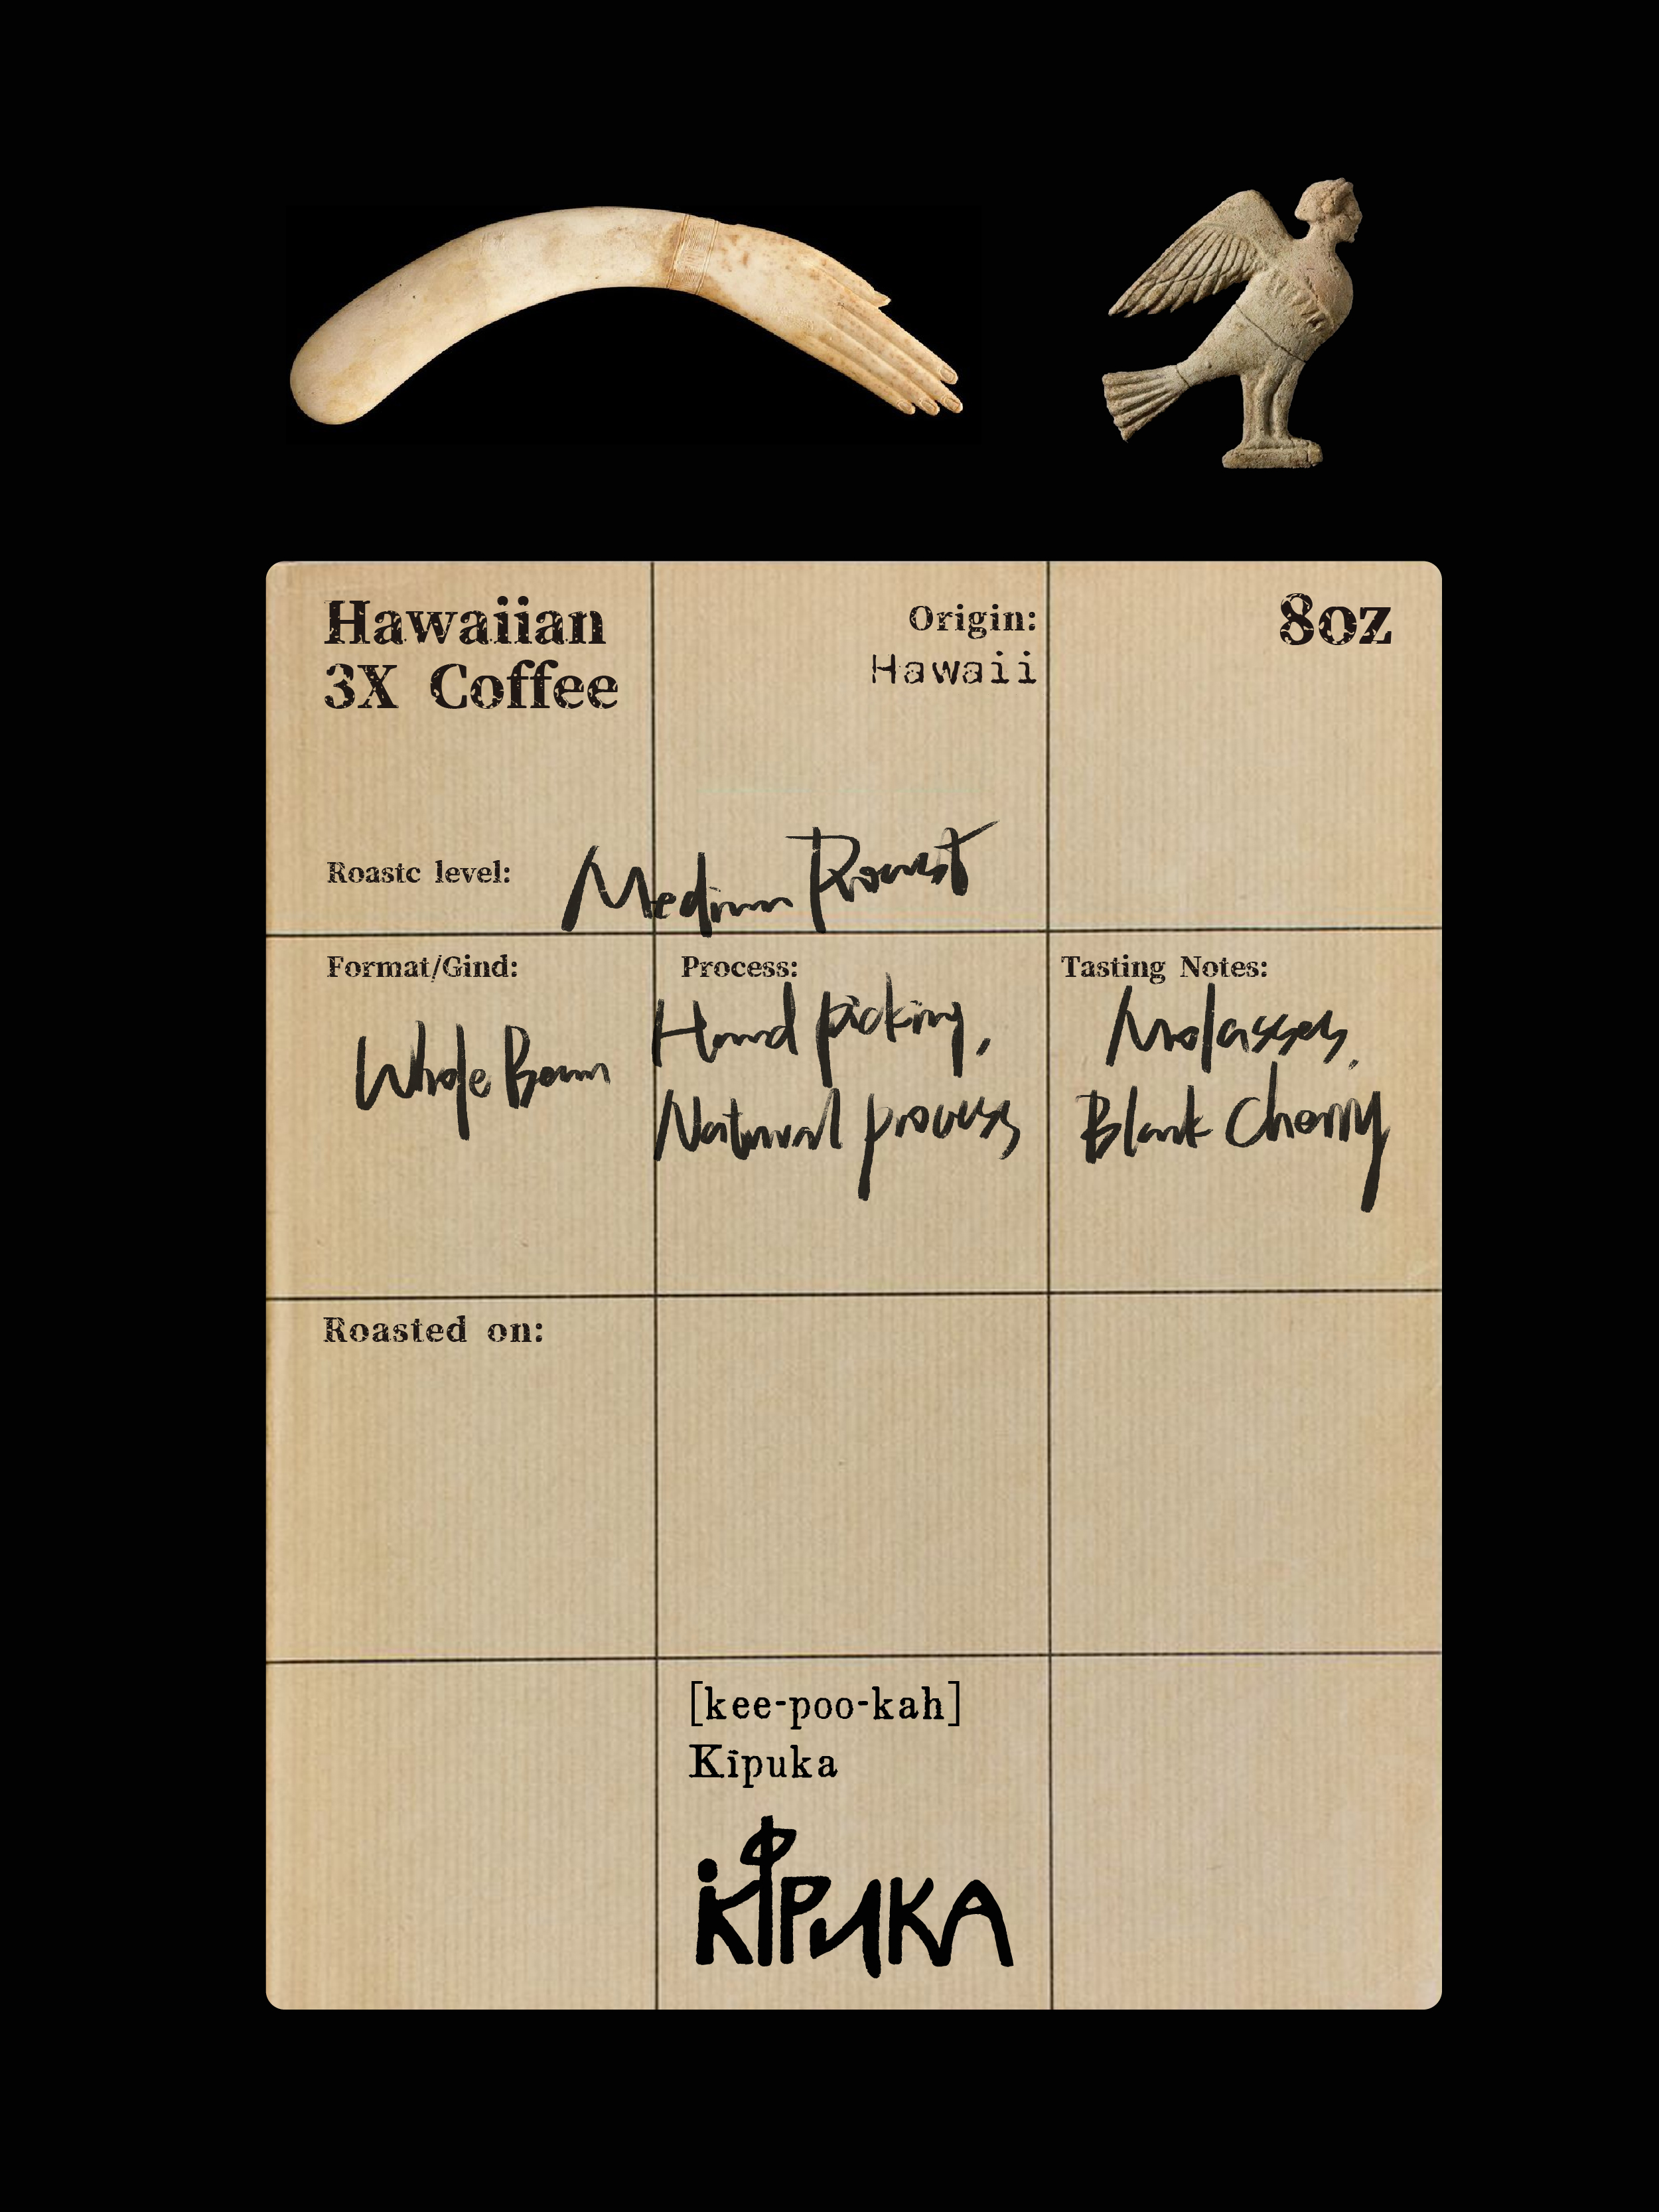 Hawaiian
3X Coffee
Origin:
Hawaii
8oz
Roastc level:
Medium Roast
Format/Gind:
Whole Bean
Process:
Hand picking,
Natural process
Tasting Notes:
Molasses,
Black Cherry
Roasted on:
[kee-poo-kah]
Kīpuka
KIPUKA